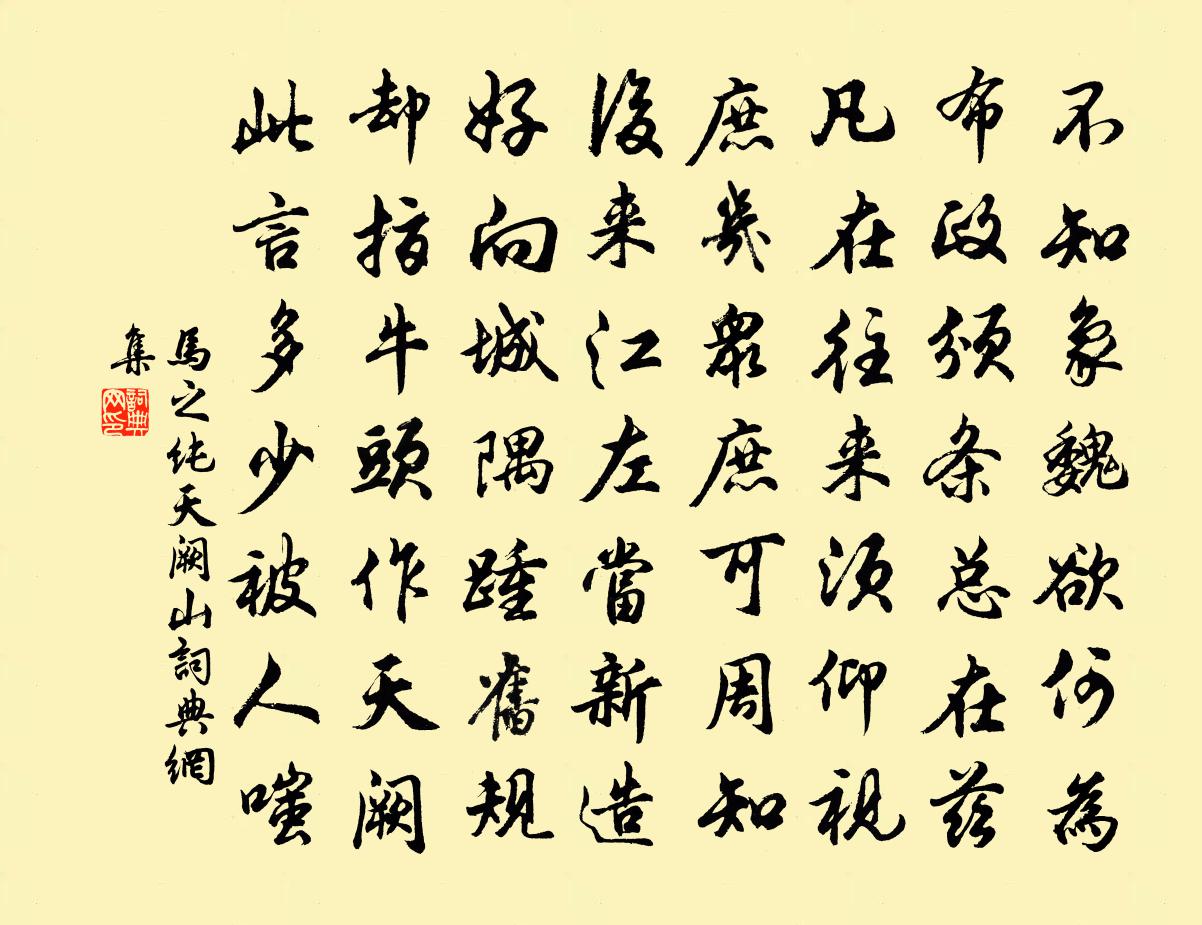 不知象魏欲何為
布政頒条总在茲
凡在往来須仰視
庶幾眾庶可周知
後来江左當新造
好向城隅踵舊規
却指牛頭作天闕
此言多少被人嗤
馬之纯天阙山詞典網
集
詞典網印